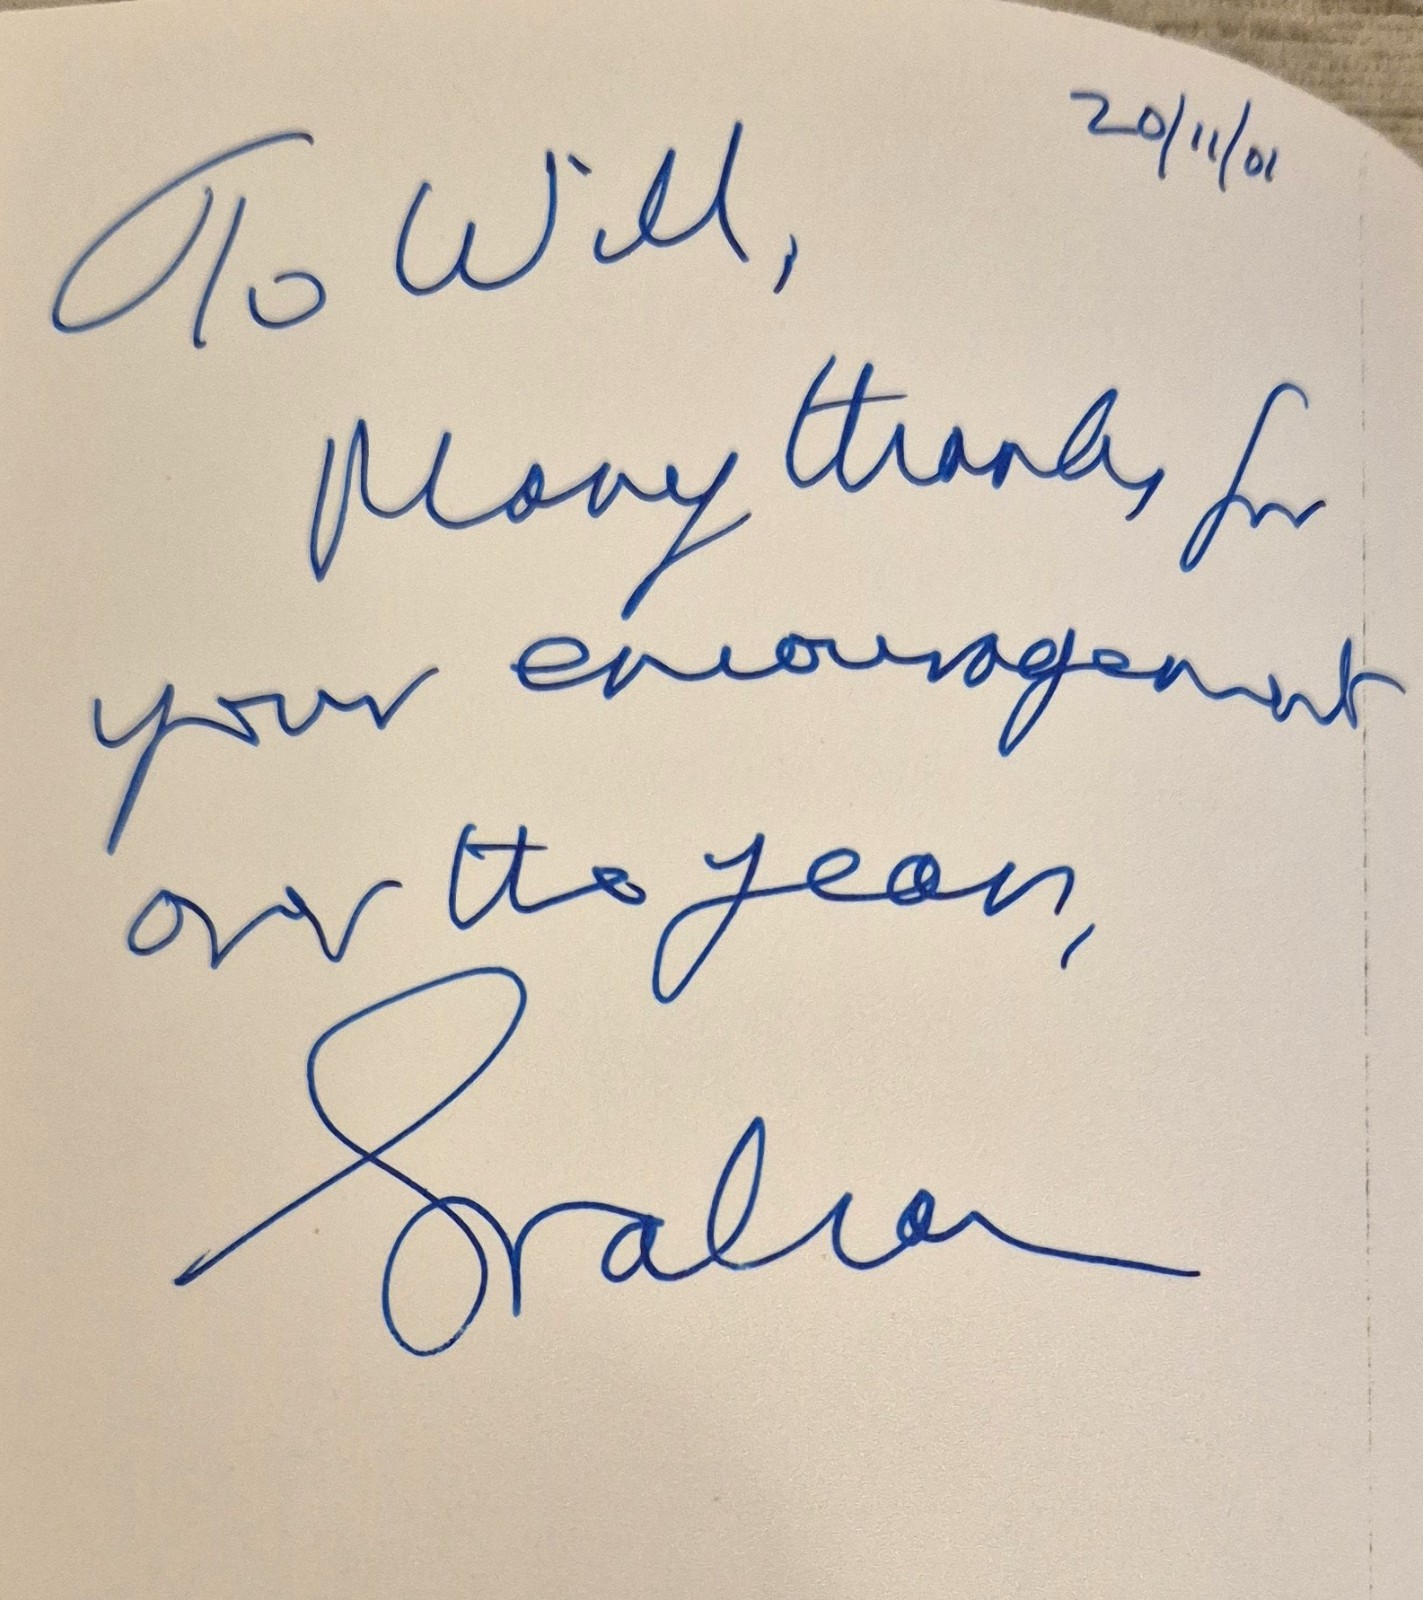 20/11/01
To Will,
Many thanks for
your encouragement
over the years,
Graham